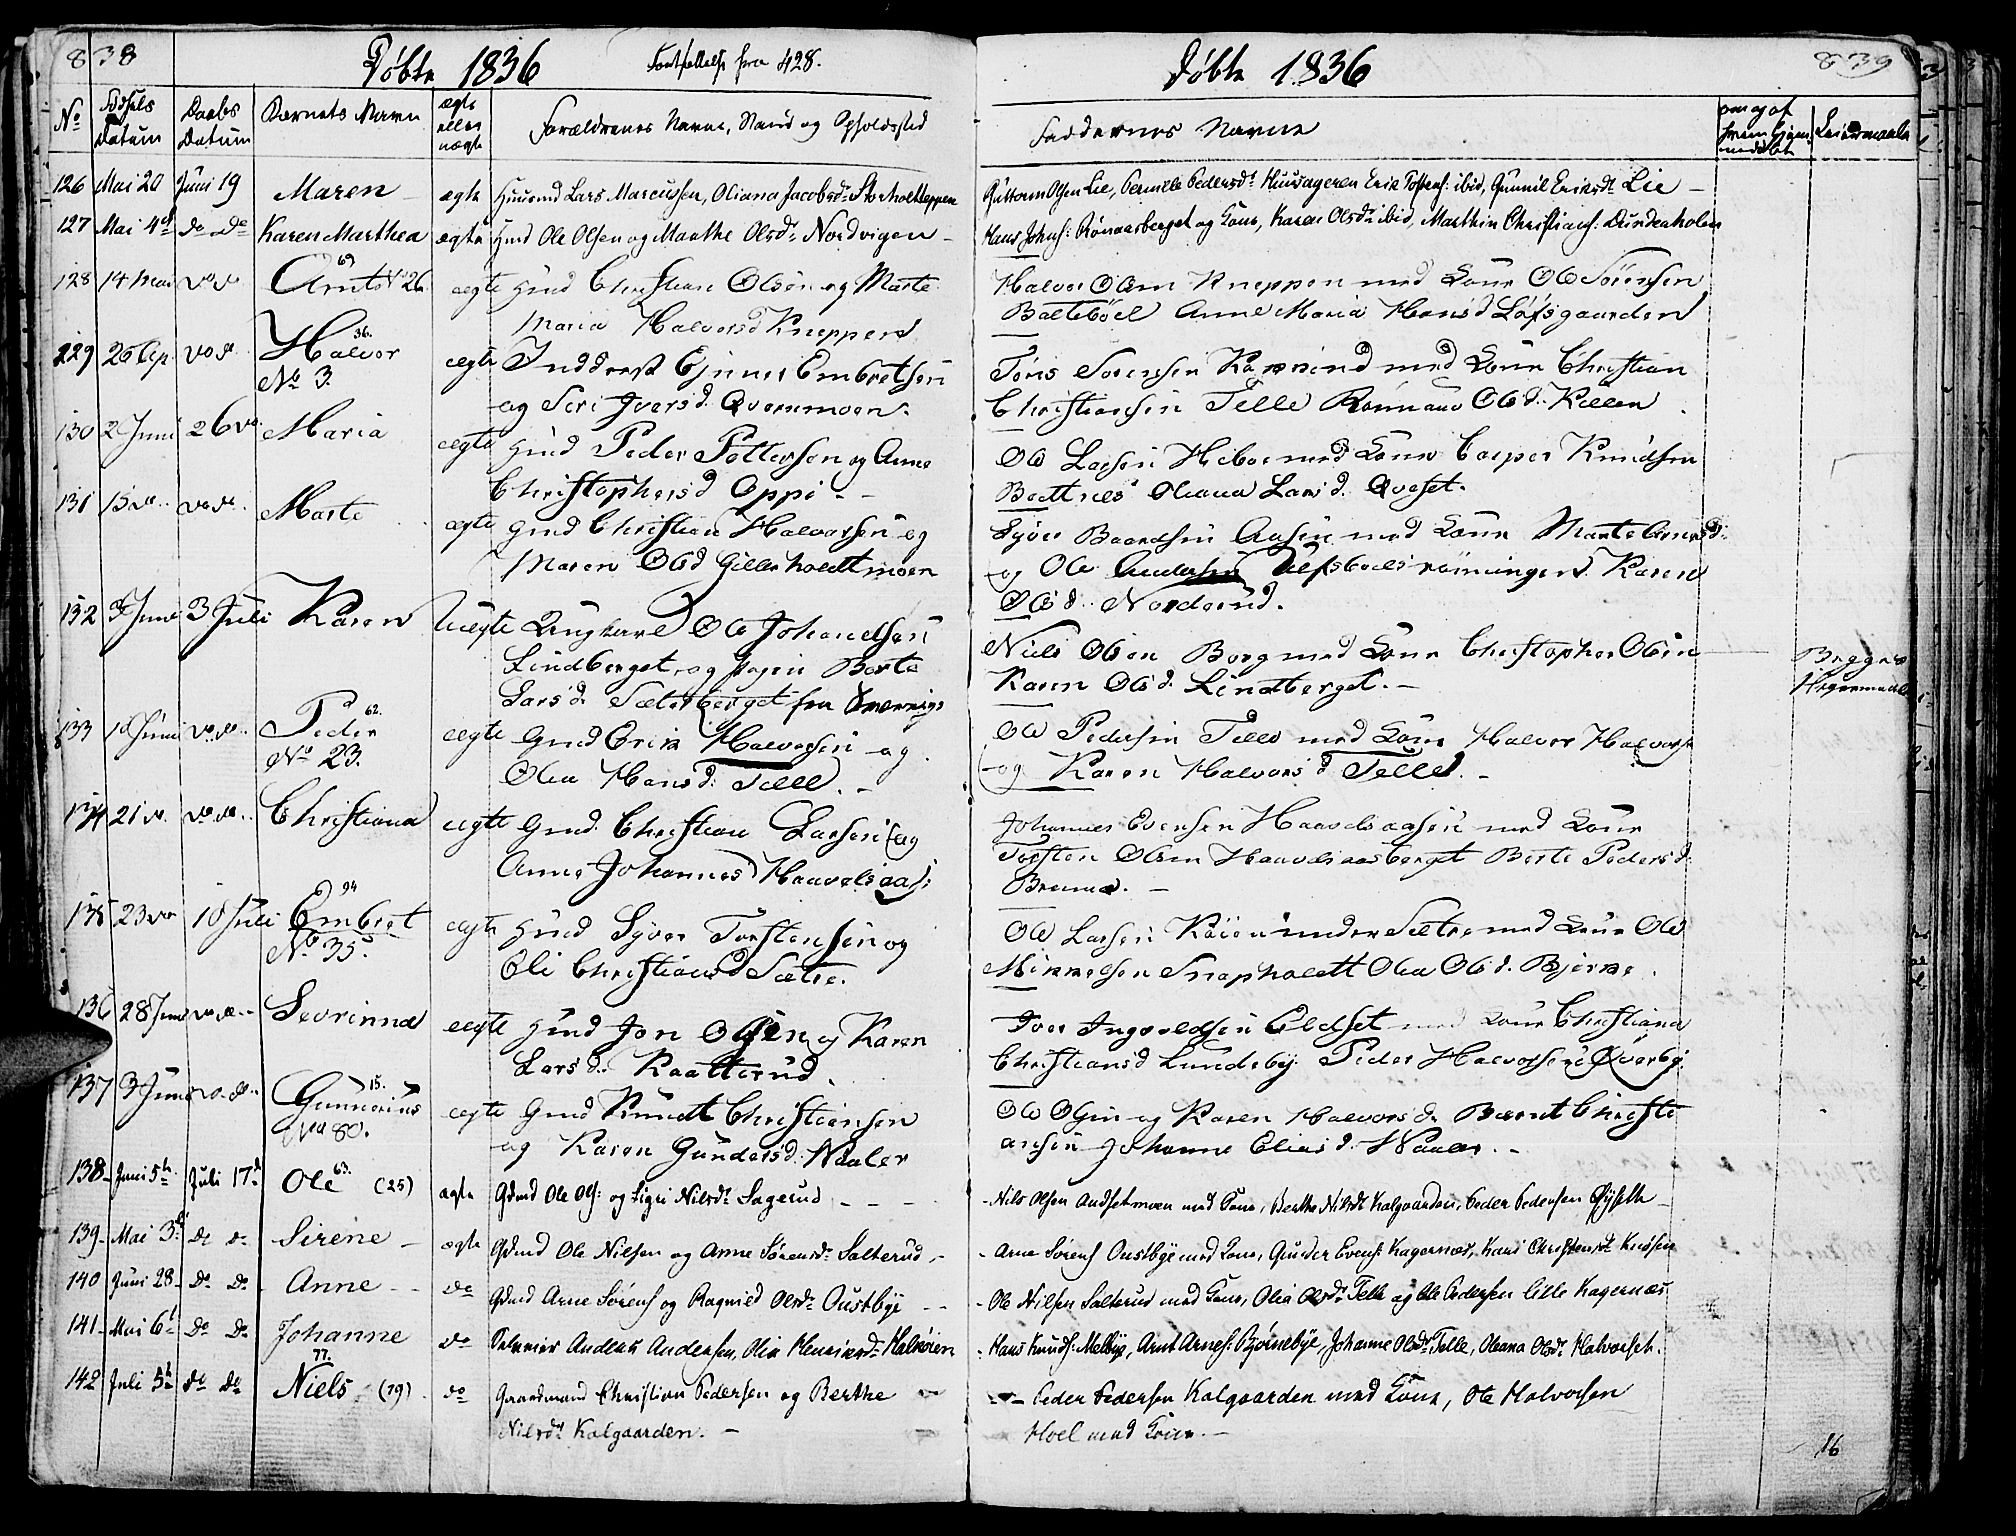 838
Döbte 1836 Fortsettelse fra 428.
No
Födsels Datum
Daabs Datum
Barnets Navn
ægte eller uægte
Forældrenes Navne, Stand og Opholdssted
126 Mai 20 Juni 19 Maren ægte Huusmd Lars Marcussen, Oliana Jacobsdr Storholtteppen
127 Mai 4de do do Karen Marthea ægte Hmd Ole Olsen og Marthe Olsdr Nordvigen
128 14 Mai do do Arnt No 26. 69 ægte Hmd Christian Olsen og Marte
Maria Halvorsd Kneppen
129 26 Ap. do do Halvor 36. ægte Inderst Gunner Embretsen
No 3.
og Siri Iversd. Qvernmoen.
130 2 Juni 26 do Maria ægte Hmd Peder Pettersen og Anne
Christophersd Oppi
131 15 do do do Marte ægte Gmd Christian Halvorsen og
Maren Olsd Gillerholdtmoen
132 3 Juni 3 Juli Karen Uægte Ungkarl Ole Johandsen
Lindberget og pigen Berte
Larsd. Sæterberget fra
133 10 Juni do do Peder 62. ægte Gmd Erik Halvorsen og
No 23.
Olea Hansd. Telle.
134 21 do. do do. Christiana ægte Gmd. Christian Larsen og
Anne Johannesd Haavelsaas:
135 23 do 10 Juli Embret 94 ægte Hmd Syver Torstensen og
No 35.
Oli Christiansd Sætre.
136 28 Juni do do Sevrinna ægte Hmd Jon Olsen og Karen
Larsd. Kaatterud.
137 3 Juni do. do. Gunnerius 15. ægte Gmd Knudt Christiansen
No 80.
og Karen Gundersd. Naaler
138 Juni 5te Juli 17de Ole 63. (25) ægte Gdmd Ole Ols: og Sigri Nilsdr Sagerud
139 Mai 3de do do Sirene ægte Gdmd Ole Nilsen og Anne Sörensdr Salterud
140 Juni 28 Do Do Anne do Gdmd Arne Sörens og Ragnild Olsdr Oustbye
141 Mai 6te Do Do Johanne do Selveier Anders Andersen, Olia Henriksdr Halvöien
142 Juli 5te do do Niels 77. (79) do Gaardmand Christian Pedersen og Berthe
Nilsdr Kalgaarden.
Döbte 1836
839
Faddernes Navne
om og af hvem hjemmedöbt
Leiermaale
Guttorm Olsen Lie, Pernille Pedersdr Huusageren Erik Postens: ibid, Gunnil Eriksdr Lie
Hans Johns: Rönaasberget og Kone, Karen Olsdr ibid, Marthin Christians: Dundeaholen
Halvor Olsen Kneppen med Kone Ole Sörensen
Baltebøel Anne Maria Hansd Löfsgaarden
Töris Sörensen Kammind med Kone Christian
Christiansen Telle Rönnaug Olsd. Killen
Ole Larsen Heboe med Kone Casper Knudsen
Bredtnes Oliana Larsd. Qveset.
Syver Baardsen Aasen med Kone Marte Arnesd.
og Ole Andersen Ulfsbølsrönningen Karen
Olsd. Norderud.
Niels Olsen Borg med Kone Christopher Olsen
Karen Olsd. Lindberget.
Begges
Ole Pedersen Telle med Kone Halvor Halvors
og Karen Halvorsd Telle.
Johannes Evensen Haavelsaasen med Kone
Torsten Olsen Haavelsaasberget Berte Pedersd.
Bruna.
Ole Larsen Röien under Sætre med Kone Ole
Mikkelsen Snapholdt Olea Olsd. Bjerke.
Iver Ingvaldsen Eldset med Kone Christiana
Christiansd Lundeby Peder Halvorsen Överby.
Ole Olsen og Karen Halvorsd. Bærnt Christi
ansen Johanne Eliasd. Naaler.
Nils Olsen Audsetmoen med Kone, Berthe Nilsdr Kalgaarden, Peder Pedersen Öyseth
Arne Sörens Oustbye med Kone, Gunder Evens: Kagernæs, Kari Christensdr Knissen
Ole Nilsen Salterud med Kone, Olia Olsdr Telle og Ole Pedersen lille Kagernæs
Hans Knuds: Melbye, Arnt Arnes: Bjørnebye, Johanne Olsdr Telle, Oleana Olsdr Halvorset.
Peder Pedersen Kalgaarden med Kone, Ole Halvorsen
Hoel med Kone.
16